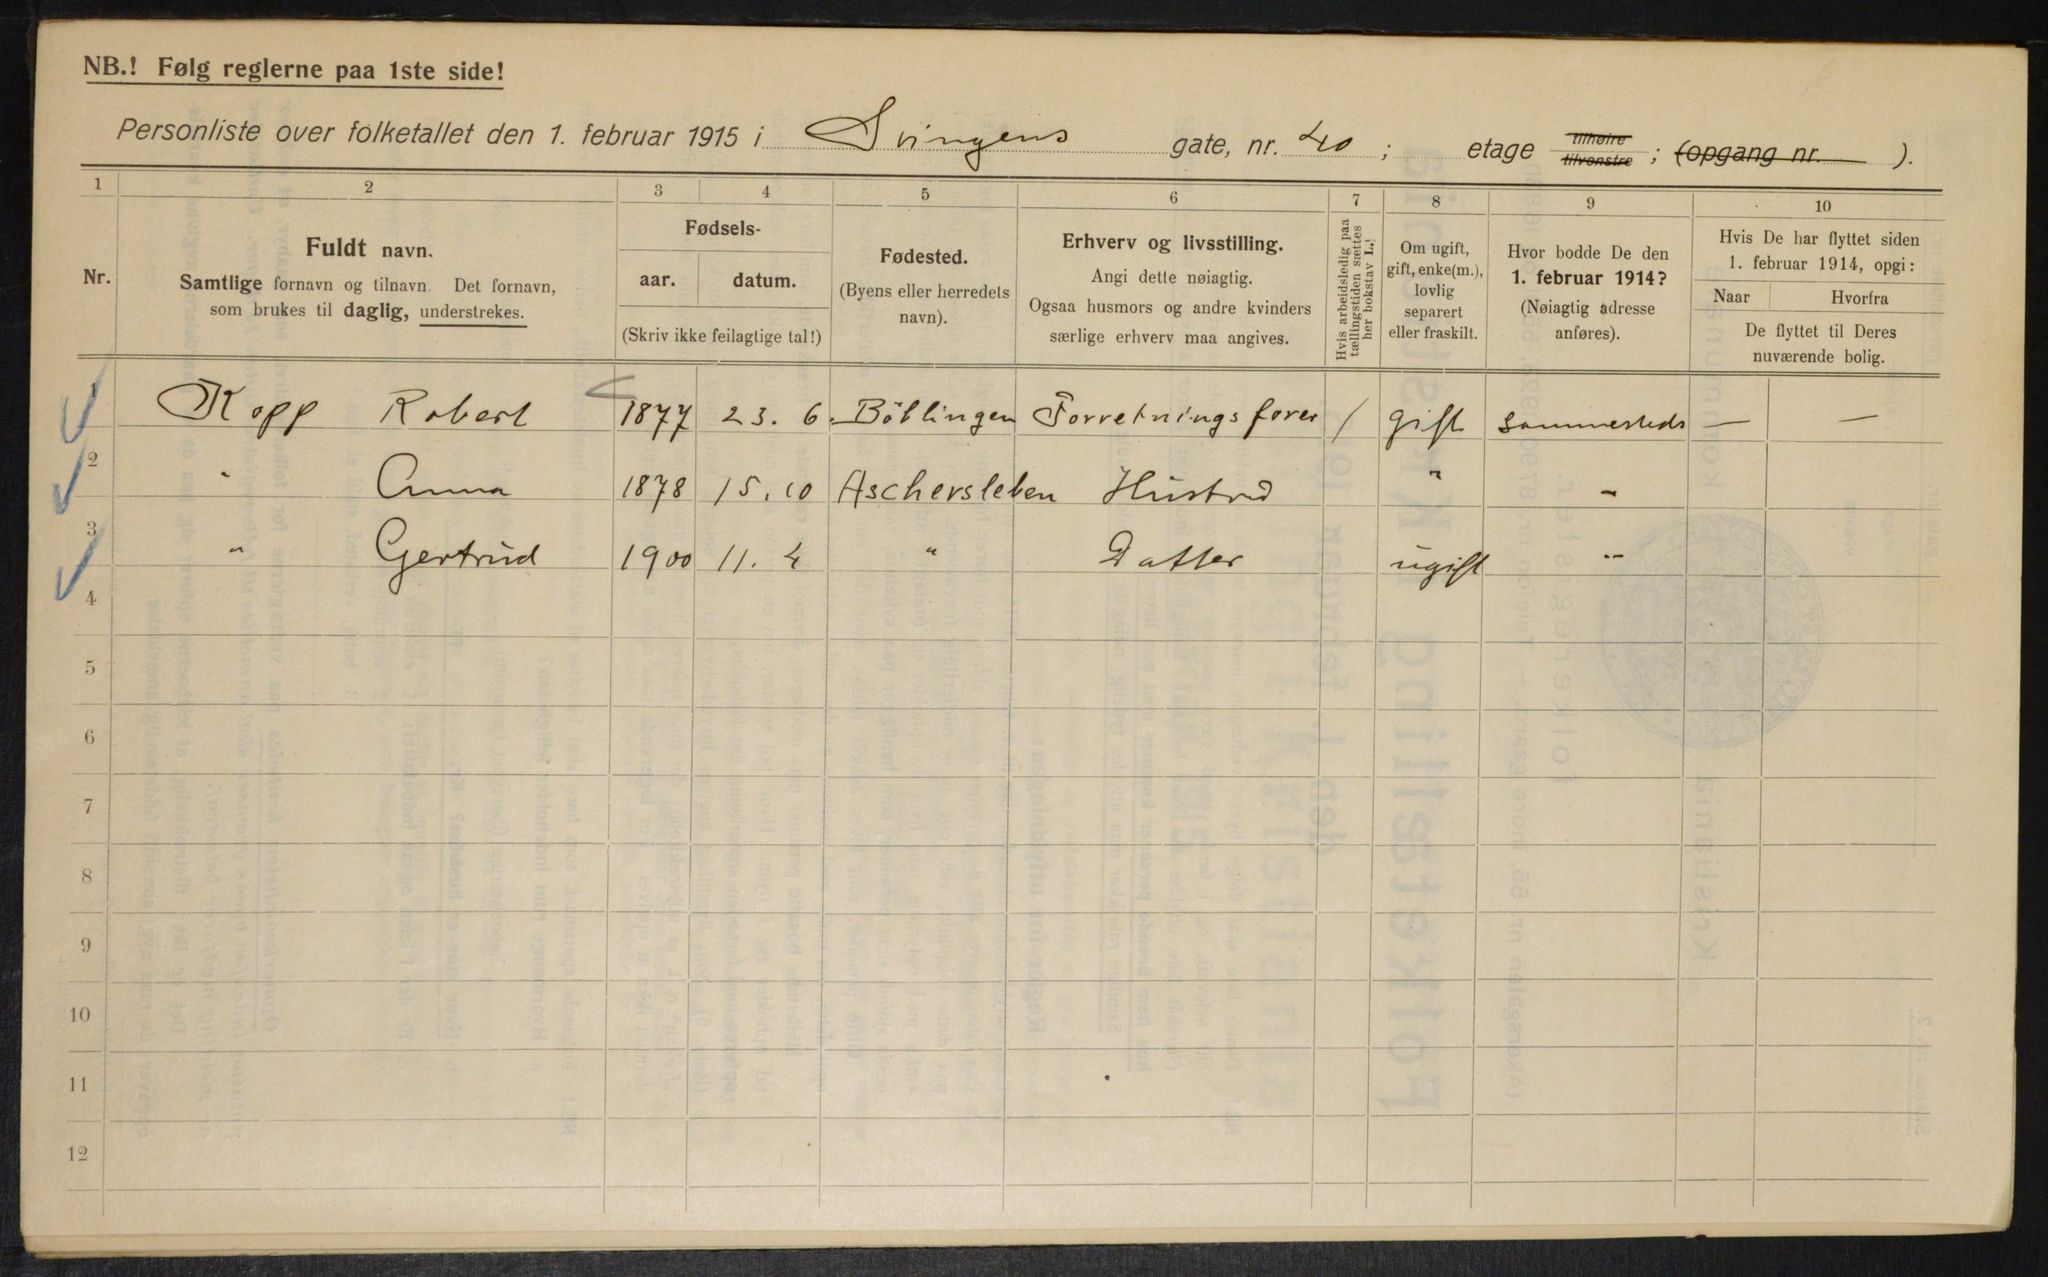 NB.! Følg reglerne paa 1ste side!
Personliste over folketallet den 1. februar 1915 i Svingens gate, nr. 40; etage tilhøire tilvenstre; (opgang nr. ).
1 2 3 4 5 6 7 8 9 10
Nr.
Fuldt navn.
Samtlige fornavn og tilnavn. Det fornavn,
som brukes til daglig, understrekes.
Fødsels-
aar. datum.
(Skriv ikke feilagtige tal!)
Fødested.
(Byens eller herredets
navn).
Erhverv og livsstilling.
Angi dette nøiagtig.
Ogsaa husmors og andre kvinders
særlige erhverv maa angives.
Hvis arbeidsledig paa
tællingstiden sættes
her bokstav L.!
Om ugift,
gift, enke(m.),
lovlig
separert
eller fraskilt.
Hvor bodde De den
1. februar 1914?
(Nøiagtig adresse
anføres).
Hvis De har flyttet siden
1. februar 1914, opgi:
Naar Hvorfra
De flyttet til Deres
nuværende bolig.
1 Kopp Robert 1877 23. 6. Böblingen Forretningsfører / gift sammesteds — —
2 " Anna 1878 15.10 Aschersleben Hustru " "
3 " Gertrud 1900 11. 4 " Datter ugift "
4
5
6
7
8
9
10
11
12